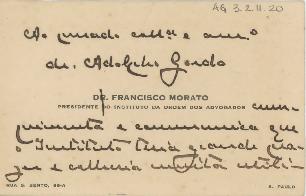 AG 3.2.11.20
Ao prezado collª e amº
dr. Adolpho Gordo
DR. FRANCISCO MORATO
PRESIDENTE DO INSTITUTO DA ORDEM DOS ADVOGADOS
cumprimenta e communica que
o Instituto teria grande pra-
zer e colheria muita utili-
RUA S. BENTO,
S. PAULO